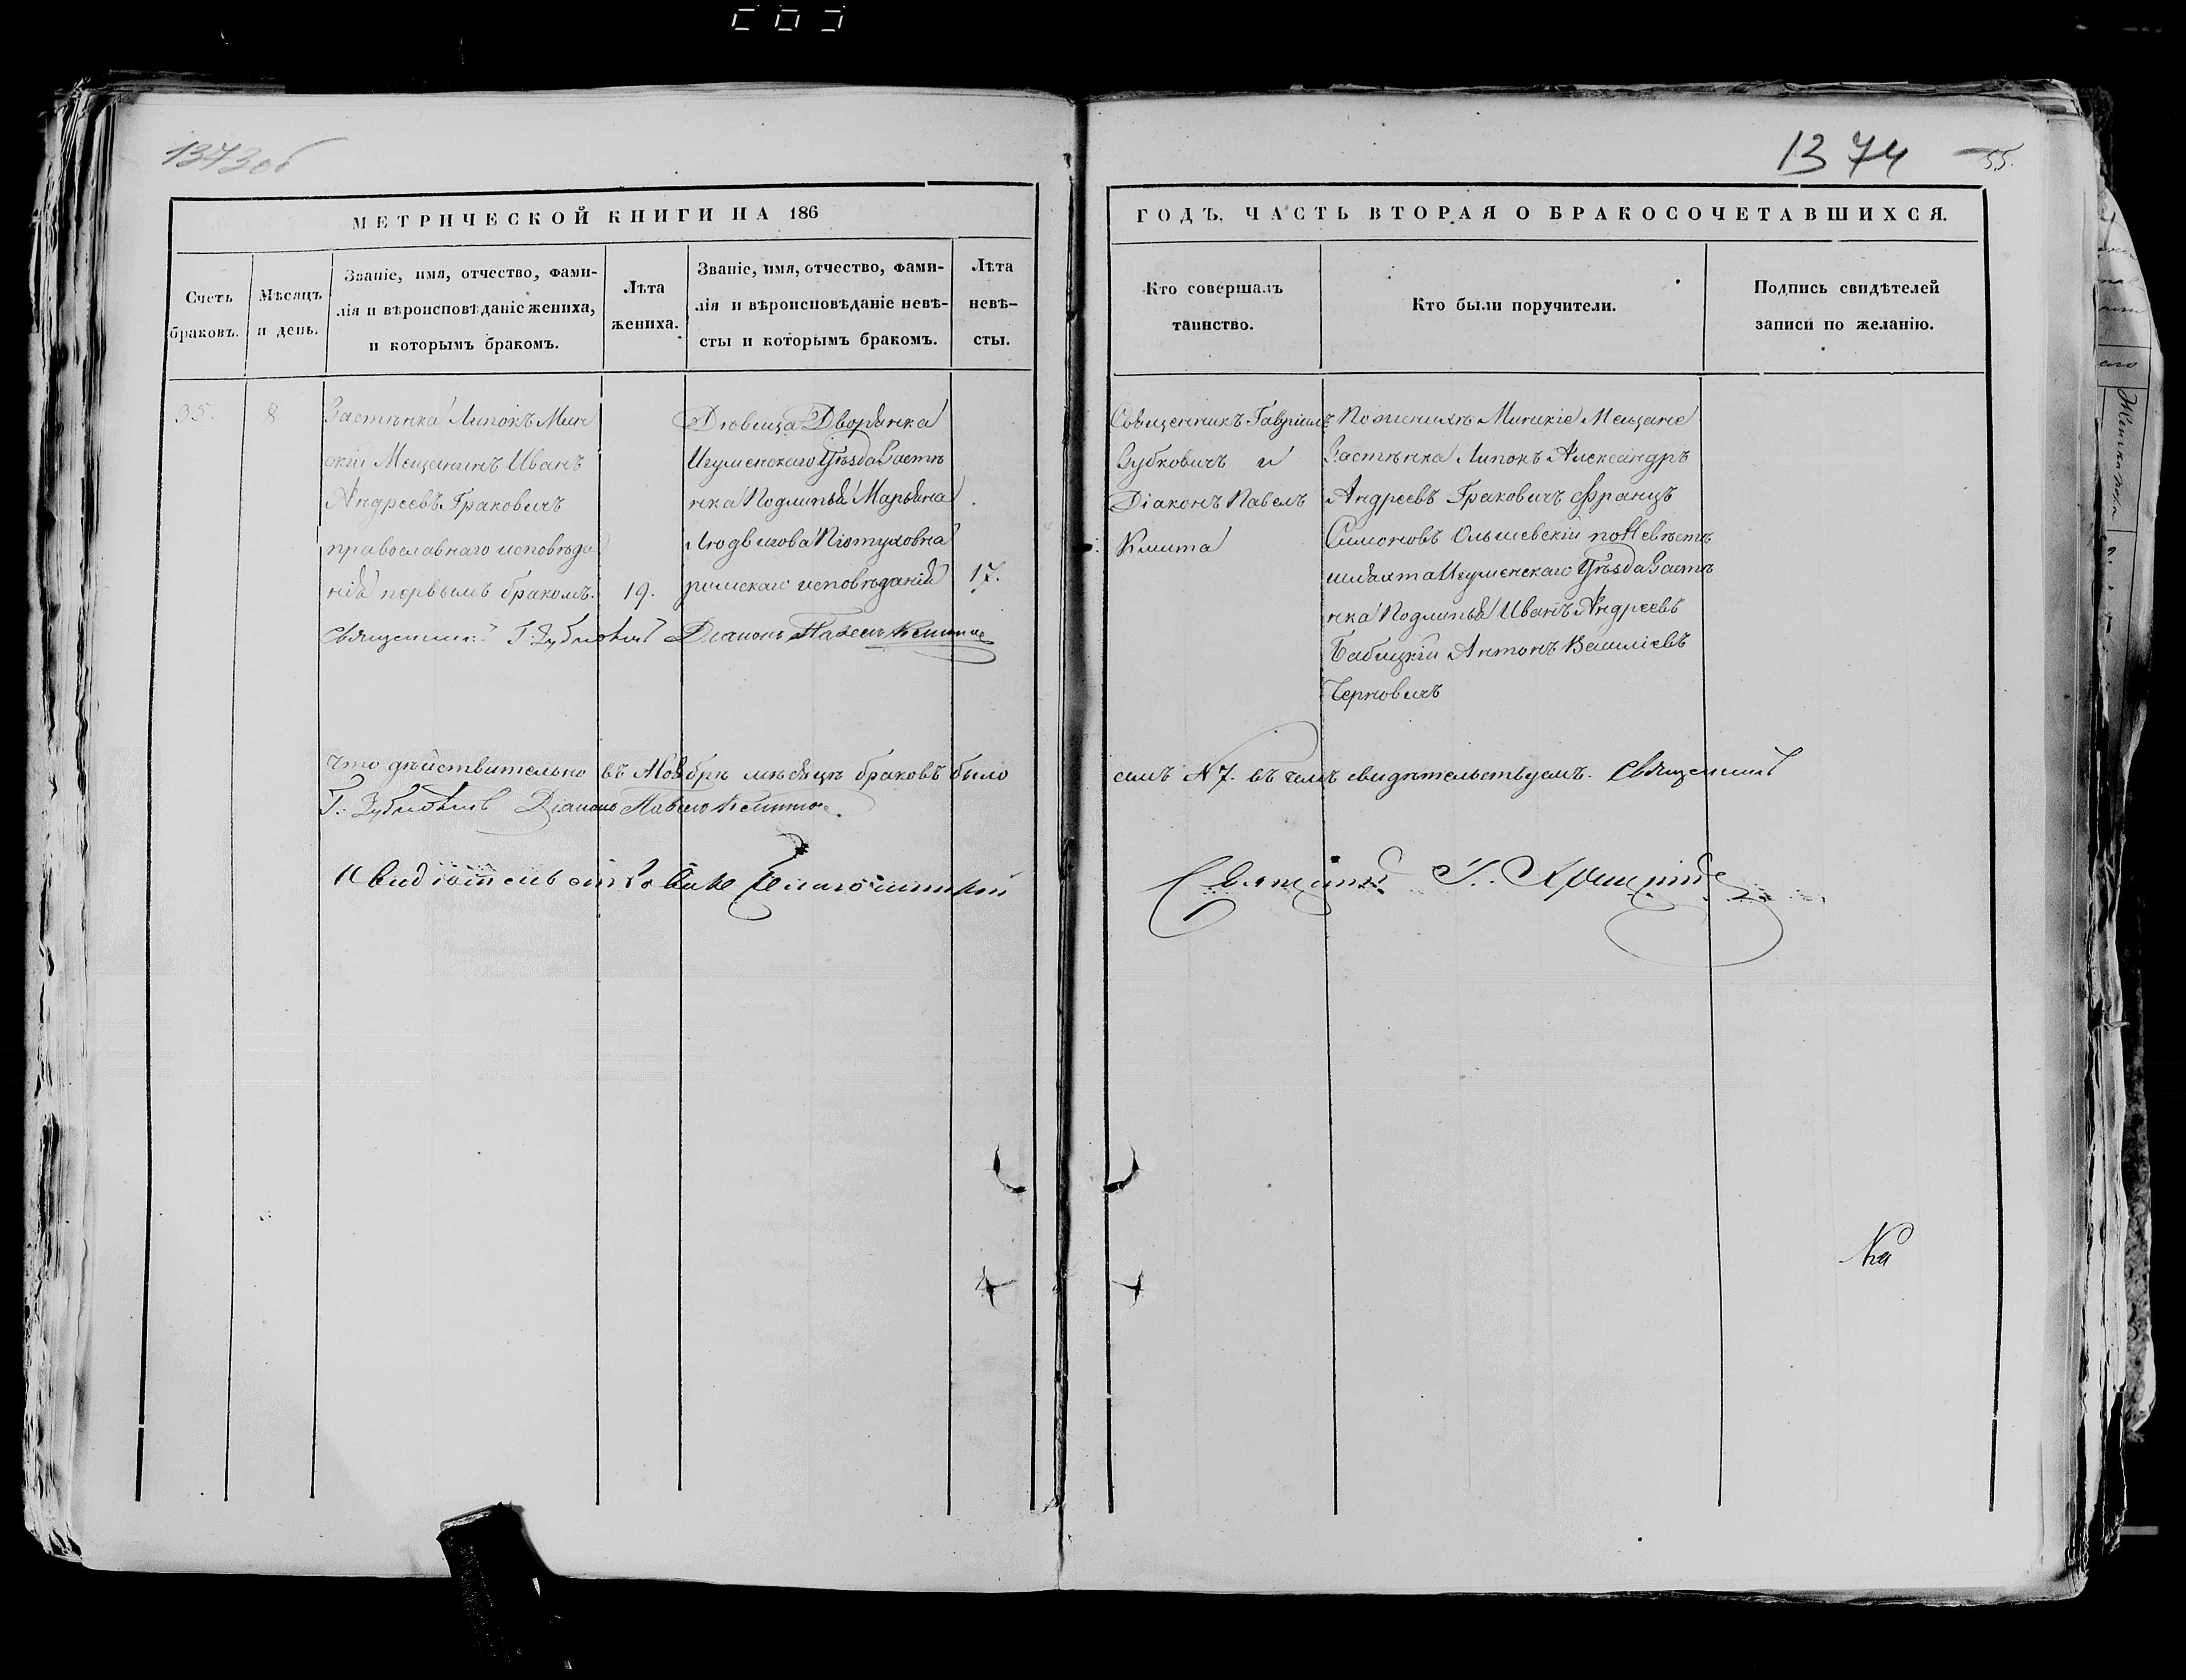 1373об
МЕТРИЧЕСКОЙ КНИГИ НА 186
Счетъ
браковъ.
Мѣсяцъ
и день.
Званіе, имя, отчество, фами-
лія и вѣроисповѣданіе жениха,
и которымъ бракомъ.
Лѣта
жениха.
Званіе, имя, отчество, фами-
лія и вѣроисповѣданіе невѣ-
сты и которымъ бракомъ.
Лѣта
невѣ-
сты.
35.
8
Застѣнка Липокъ Мин
скій Мещанинъ Иванъ
Андреевъ Граковичъ
православнаго исповѣда
нія первымъ бракомъ.
19.
Дѣвица Дворянка
Игуменскаго Уѣзда Застѣ
нка Подлипья Марьяна
Людвигова
римскаго исповѣданія
17.
Священникъ Г. Зубковичъ Діаконъ Павелъ Кмита
Что дѣйствительно въ Ноябрѣ мѣсяцѣ браковъ было
Г. Зубковичъ Діаконъ Павелъ Кмита.
1374
55.
ГОДЪ, ЧАСТЬ ВТОРАЯ О БРАКОСОЧЕТАВШИХСЯ.
Кто совершалъ
таинство.
Кто были поручители.
Подпись свидѣтелей
записи по желанію.
Священникъ Гавріилъ
Зубковичъ и
Діаконъ Павелъ
Кмита
По женихѣ Минскіе Мещане
Застѣнка Липокъ Александръ
Андреевъ Граковичъ Францъ
Симоновъ Ольшевскій по Невѣстѣ
шляхта Игуменскаго Уѣзда Застѣ
нка Подлипья Иванъ Андреевъ
Бабицкій Антонъ Васильевъ
Черновичъ
семь № 7. въ чемъ свидѣтельствуемъ. Священникъ
Священникъ